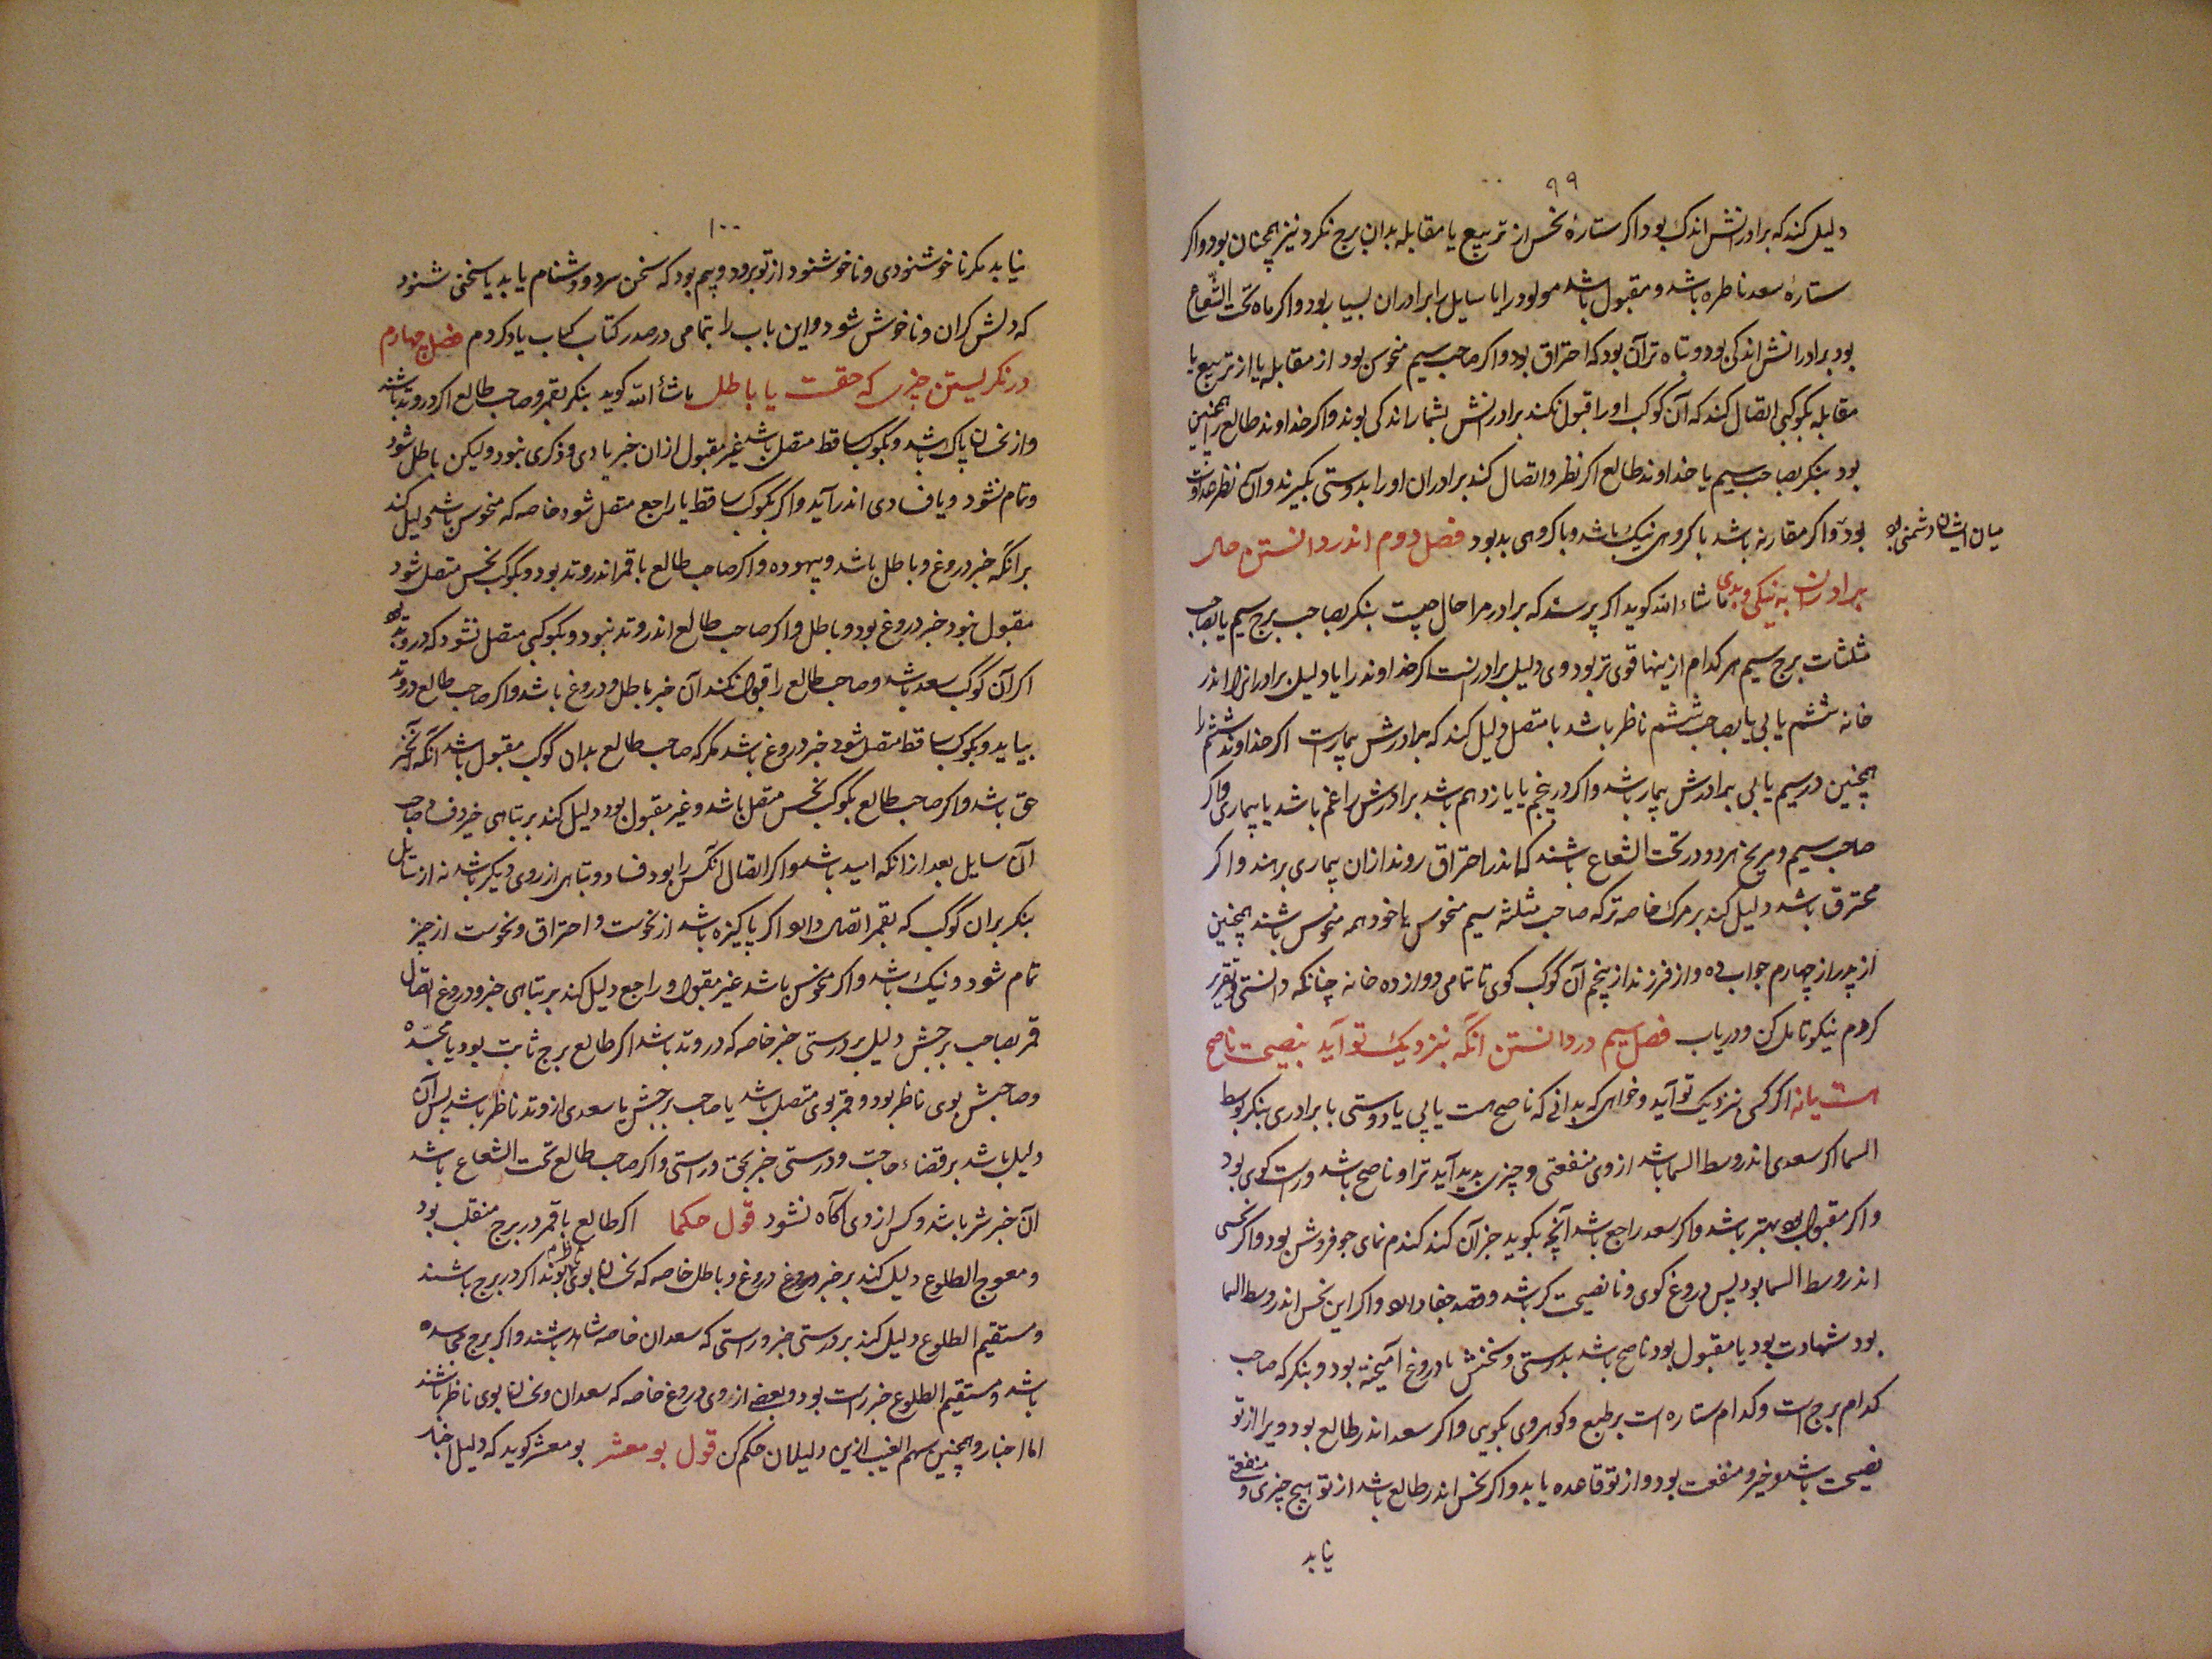 ۹۹
دلیل کند که برادرانش اندک بود اکر ستارهٔ نحس از تربیع یا مقابله بدان برج نکرد نیز همچنان بود و اکر
ستارهٔ سعد ناظره باشد و مقبول باشد مولود را یا سایل را برادران بسیار بود و اکر ماه تحت الشعاع
بود برادرانش اندکی بود و تباه تر آن بود که احتراق بود و اکر صاحب سیم منحوس بود از مقابله یا از تربیع یا
مقابله بکوکبی اتصال کند که آن کوکب او را قبول نکند برادرانش بشمار اندکی بوند و اکر خداوند طالع را همچنین
بود بنکر بصاحب سیم یا خداوند طالع اکر نظر و اتصال کند برادران او را بدوستی بکیرند و آن نظر عداوت
بود و اکر مقارنه باشد با کروهی نیک باشد و با کروهی بد بود فصل دوم اندر دانستن حال
میان ایشان دشمنی بود
برادران به نیکی و بدی ما شاء الله کوید اکر پرسند که برادر مرا حال چیست بنکر بصاحب برج سیم یا بصاحب
مثلثات برج سیم هر کدام ازینها قوی تر بود وی دلیل برادرانست اکر خداوند را یا دلیل برادرانرا اندر
خانه ششم یابی یا بصاحب ششم ناظر باشد یا متصل دلیل کند که برادرش بیمارست اکر خداوند ششم را
همچنین در سیم یابی برادرش بیمار باشد و اکر در پنجم یا یازدهم باشد برادرش را غم باشد یا بیماری و اکر
صاحب سیم و مریخ هر دو در تحت الشعاع باشند که اندر احتراق روند ازان بیماری برهند و اکر
محترق باشد دلیل کند بر مرک خاصه ترکه صاحب مثلثه سیم منحوس یا خود همه منحوس باشند همچنین
از پدر از چهارم جواب ده و از فرزند از پنجم آن کوکب کوی تا تمامی دوازده خانه چنانکه دانستی و تقریر
کردم نیکو تامل کن و دریاب فصل سیم در دانستن آنکه بنزدیک تو آید بنصیحت ناصح
است یا نه اکر کسی نزدیک تو آید و خواهی که بدانی که ناصح هست یا پی یا دوستی با برادری بنکر بوسط
السما اکر سعدی اندر وسط السما باشد از وی منفعتی و چیزی بدید آید ترا و ناصح باشد و راست کوی بود
و اکر مقبول بود بهتر باشد و اکر سعد راجع باشد آنچه بکوید جز آن کند کندم نمای جو فروش بود و اکر نحسی
اندر وسط السما بود پس دروغ کوی و نا نصیحت کر باشد و قصد جفا دارد و اکر این نحس اندر وسط السما
بود شهادت بود یا مقبول بود ناصح باشد بدرستی و سخنش با دروغ آمیخته بود و بنکر که صاحب
کدام برج است و کدام ستاره است بر طبع و کوهر وی بکویی و اکر سعد اندر طالع بود ویرا از تو
نصیحت باشد و خیر و منفعت بود و از تو فاهده یابد و اکر نحس اندر طالع باشد از تو هیچ چیزی و منفعتی
نیابد
۱۰۰
نیابد مکر ناخوشنودی و ناخوشنود از تو برود و بیم بود که سخن سرد و دشنام یابد یا سخنی شنود
که دلش کران و ناخوش شود و این باب را بتمامی در صدر کتاب یاد کردم فصل چهارم
در نکریستن چیزی که حقست یا باطل ما شأ الله کوید بنکر بقمر و صاحب طالع اکر در وتد باشد
و از نحسان پاک باشد و بکوکب ساقط متصل باشد غیر مقبول ازان خبر یادی و ذکری بود ولیکن باطل شود
و تمام نشود و یا فسادی اندر آید و اکر بکوکب ساقط یا راجع متصل شود خاصه که منحوس باشد دلیل کند
برانکه خبر دروغ و باطل باشد و بیهوده و اکر صاحب طالع با قمر اندر وتد بود و بکوکب نحس متصل شود
مقبول نبود خبر دروغ بود و باطل و اکر صاحب طالع اندر وتد نبود و بکوکبی متصل نشود که در وتد بود
اکر آن کوکب سعد باشد و صاحب طالع را قبول نکند آن خبر باطل و دروغ باشد و اکر صاحب طالع در وتد
بیاید و بکوکب ساقط متصل شود خبر دروغ باشد مکر که صاحب طالع بدان کوکب مقبول باشد آنکه آن خبر
حق باشد و اکر صاحب طالع بکوکب نحس متصل باشد و غیر مقبول بود دلیل کند بر تباهی خبر و فساد حاجت
آن سایل بعد از انکه امید باشد و اکر اتصال آن کس را بود فساد و تباهی از روی دیکر باشد نه از سایل
بنکر بران کوکب که بقمر اتصال دارد اکر پاکیزه باشد از نحوست و احتراق و نحوست از چیز
تمام شود و نیک باشد و اکر منحوس باشد غیر مقبول و راجع دلیل کند بر تباهی خبر و دروغ اتصال
قمر بصاحب برجش دلیل بر درستی خبر خاصه که در وتد باشد اکر طالع برج ثابت بود یا مجسده
و صاحبش بوی ناظر بود و قمر بوی متصل باشد یا صاحب برجش یا سعدی از وتد ناظر باشد پس آن
دلیل باشد بر قضاء حاجت و درستی خبر بحق و راستی و اکر صاحب طالع تحت الشعاع باشد
آن خبر شر باشد و کس از وی آکاه نشود قول حکما اکر طالع با قمر در برج منقلب بود
و معوج الطلوع دلیل کند بر خبر دروغ و باطل خاصه که نحسان بوی ناظر بوند اکر در برج باشند
و مستقیم الطلوع دلیل کند بر درستی خبر و راستی که سعدان خاصه شاهد باشند و اکر برج مجسده
باشد و مستقیم الطلوع خبر راست بود و بعضی از وی دروغ خاصه که سعدان و نحسان بوی ناظر باشند
اما اخبار و همچنین سهم الغیب ازین دلیلان حکم کن قول بو معشر بو معشر کوید که دلیل اخبار